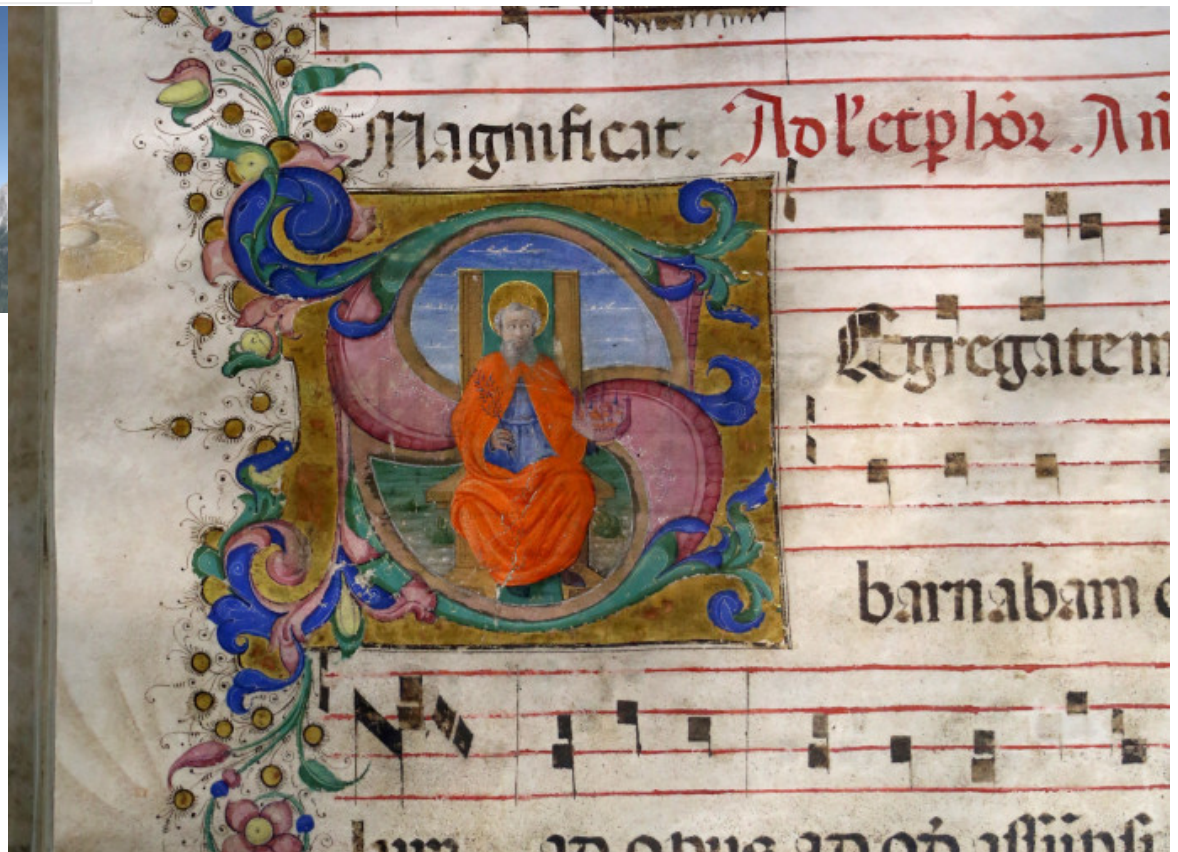 Magnificat. Ad l'et p hōr. An
SEgregatem
barnabam
lum ad opus ad qḋ assūpsi